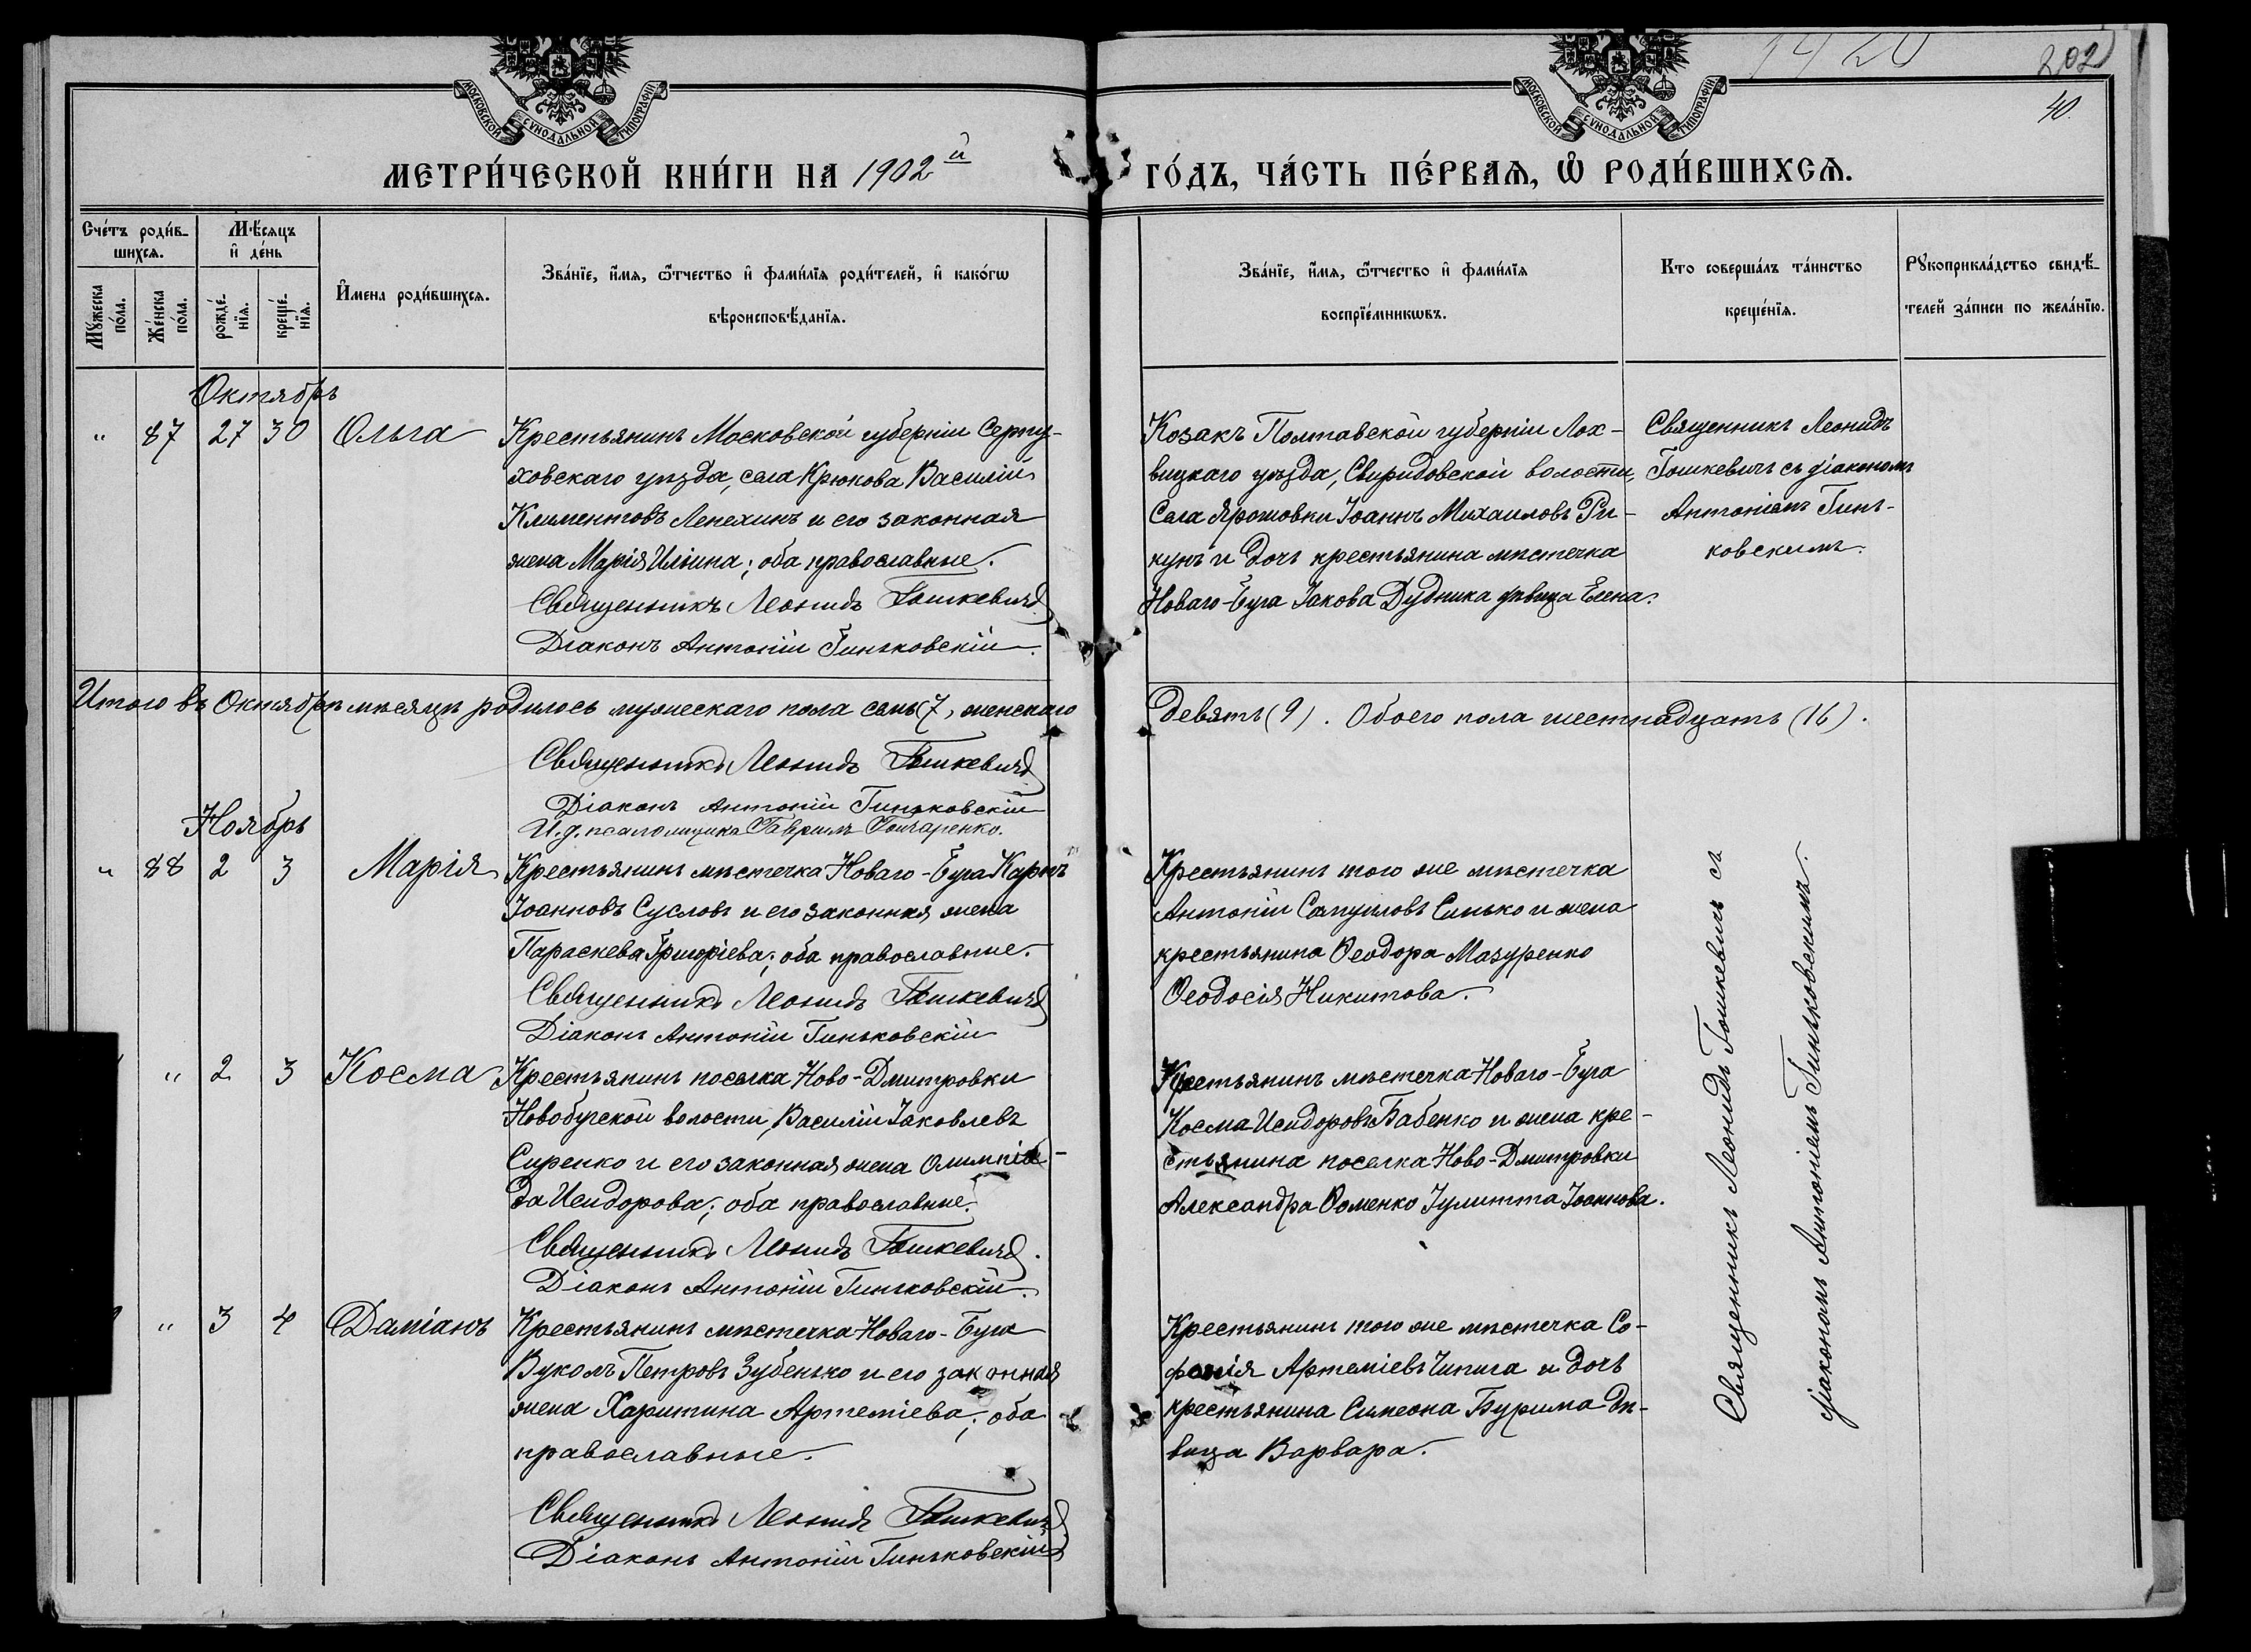 1420
202
40.
МОСКОВСКОЙ СѴНОДАЛЬНОЙ ТИПОГРАФІИ
МОСКОВСКОЙ СѴНОДАЛЬНОЙ ТИПОГРАФІИ
МЕТРИ́ЧЕСКОЙ КНИ́ГИ НА 1902й ГО́ДЪ, ЧА́СТЬ ПЕ́РВАѦ, Ѡ РОДИ́ВШИХСѦ.
Сче́тъ роди́в-
шихсѧ.
Мꙋ́жеска
по́ла.
Же́нска
по́ла.
Мѣ́сѧцъ
и҆ де́нь
рожде́-
нїѧ.
креще́-
нїѧ.
И҆мена роди́вшихсѧ.
Зва́нїе, и҆́мѧ, ѻ҆́тчество и҆ фами́лїѧ роди́телей, и҆ како́гѡ
вѣроисповѣ́данїѧ.
Зва́нїе, и҆́мѧ, ѻ҆́тчество и҆ фами́лїѧ
воспрїе́мникѡвъ.
Кто соверша́лъ та́инство
креще́нїѧ.
Рꙋкоприкла́дство свидѣ́-
телей за́писи по жела́нїю.
Октябрь
" 87 27 30 Ольга
Крестьянинъ Московской губерніи Серпу-
ховскаго уѣзда, села Крюкова Василій
Климентовъ Лепехинъ и его законная
жена Марія Ильина; оба православные.
Священникъ Леонидъ Гошкевичъ
Діаконъ Антоній Гиньковскій.
Козакъ Полтавской губерніи Лох-
вицкаго уѣзда, Свиридовской волости,
Села Ярошовки Іоаннъ Михаиловъ Ри-
кунъ и дочь крестьянина мѣстечка
Новаго-Буга Іакова Дудника дѣвица Елена.
Священникъ Леонидъ
Гошкевичъ съ діакономъ
Антоніемъ Гинь-
ковскимъ.
Итого въ Октябрѣ мѣсяцѣ родилось мужескаго пола семь (7), женскаго
Девять (9). Обоего пола шестнадцать (16).
Священникъ Леонидъ Гошкевичъ
Діаконъ Антоній Гиньковскій
И. д. псаломщика Гавріилъ Гончаренко.
Ноябрь
" 88 2 3 Марія
Крестьянинъ мѣстечка Новаго-Буга Карпъ
Іоанновъ Сусловъ и его законная жена
Параскева Григоріева; оба православные.
Священникъ Леонидъ Гошкевичъ
Діаконъ Антоній Гиньковскій
Крестьянинъ того же мѣстечка
Антоній Самуиловъ Синько и жена
крестьянина Ѳеодора Мазуренко
Ѳеодосія Никитова.
" 2 3 Косма
Крестьянинъ поселка Ново-Дмитровки
Новобугской волости, Василій Іаковлевъ
Сиренко и его законная жена Олимпіа-
да Исидорова; оба православные.
Священникъ Леонидъ Гошкевичъ.
Діаконъ Антоній Гиньковскій.
Крестьянинъ мѣстечка Новаго-Буга
Косма Исидоровъ Бабенко и жена кре-
стьянина поселка Ново-Дмитровки
Александра Ѳоменко Іулитта Іоаннова.
" 3 4 Даміанъ
Крестьянинъ мѣстечка Новаго-Буга
Вуколъ Петровъ Зубенько и его законная
жена Харитина Артеміева; оба
православные.
Священникъ Леонидъ Гошкевичъ
Діаконъ Антоній Гиньковскій
Крестьянинъ того же мѣстечка Со-
фонія Артеміевъ Чипига и дочь
крестьянина Симеона Бурима дѣ-
вица Варвара.
Священникъ Леонидъ Гошкевичъ съ
діакономъ Антоніемъ Гиньковскимъ.